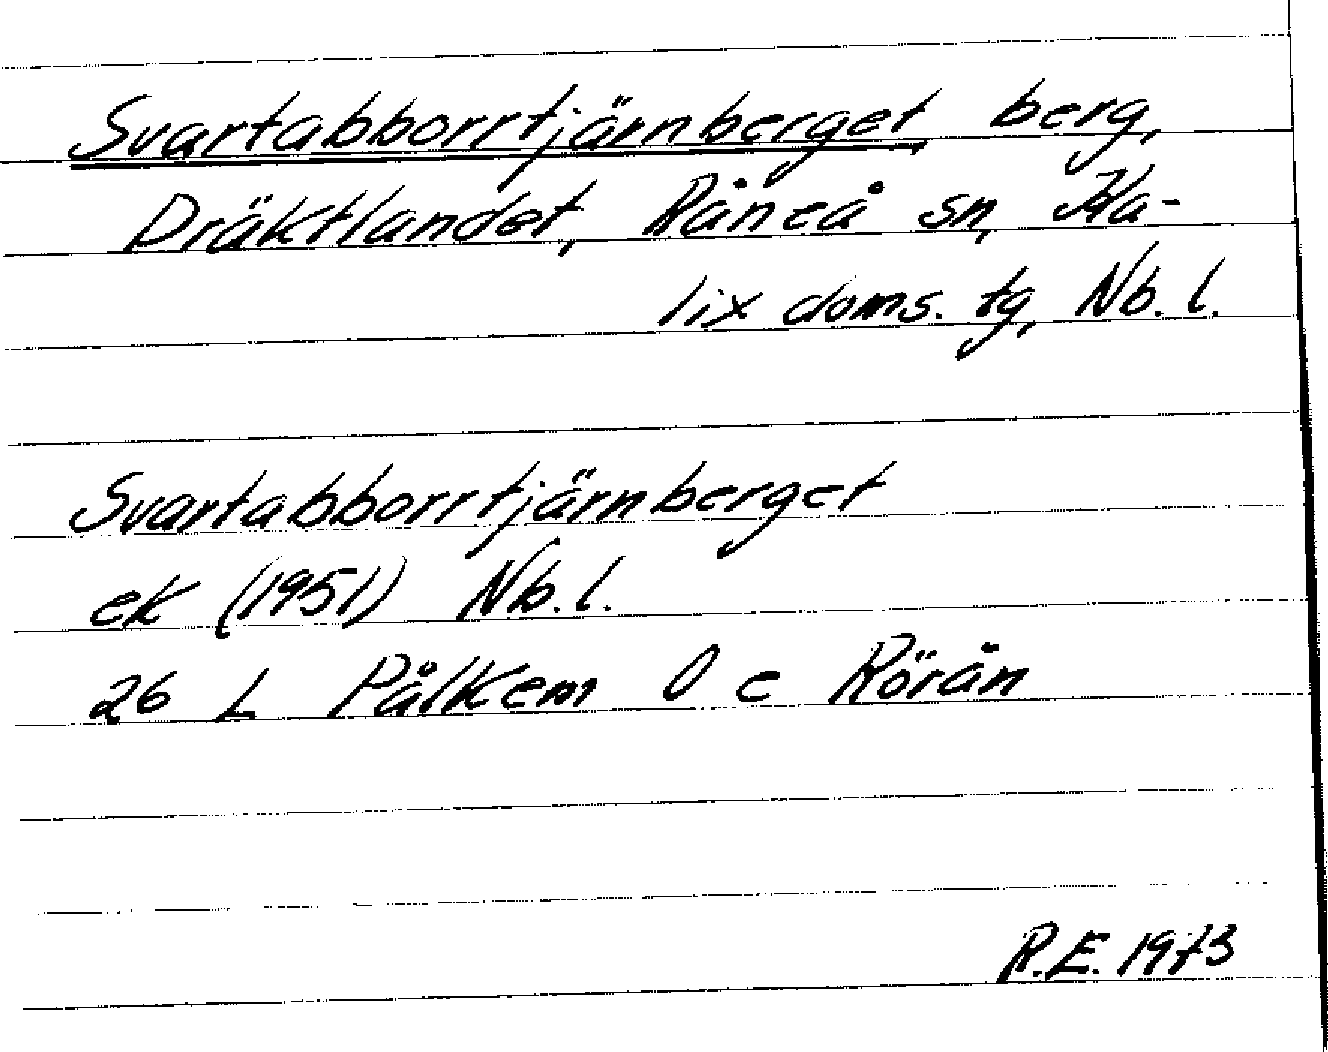 Svartabborrtjärnberget, berg,
Dräktlandet, Råneå sn, Ka-
lix doms. tg, Nb. l.
Svartabborrtjärnberget
ek (1951) Nb. l.
26 L Pålkem O e Rörån
R.E. 1973